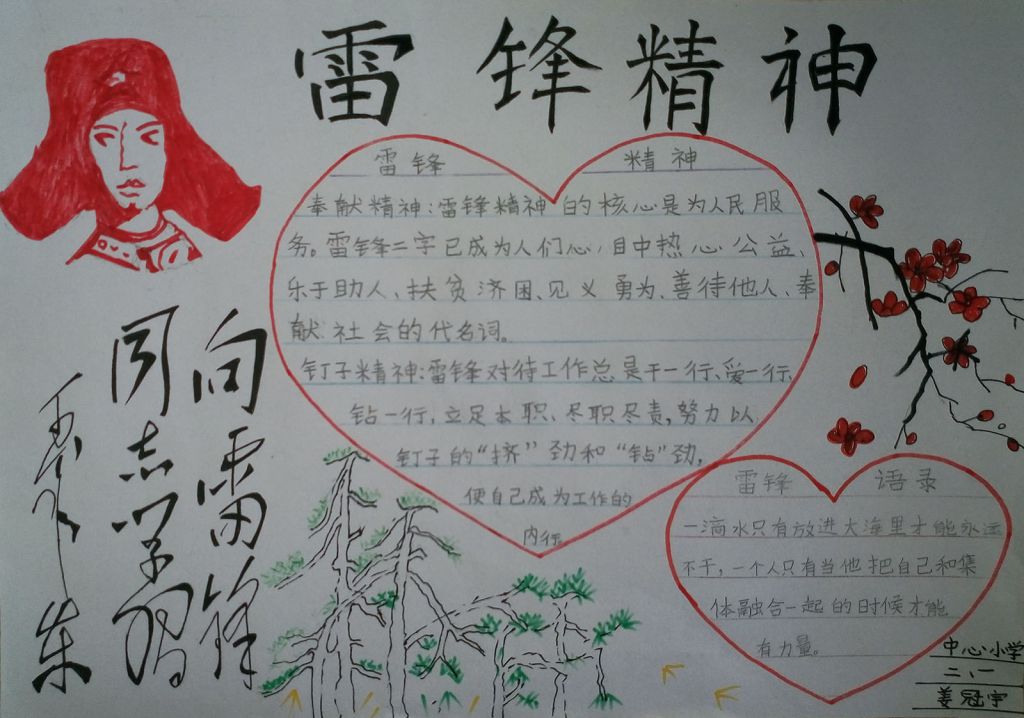 雷锋精神
雷锋 精神
奉献精神:雷锋精神的核心是为人民服
务。雷锋二字已成为人们心目中热心公益、
乐于助人、扶贫济困、见义勇为、善待他人、奉
献社会的代名词。
钉子精神:雷锋对待工作总是干一行、爱一行、
钻一行,立足本职、尽职尽责,努力以
钉子的“挤”劲和“钻”劲,
使自己成为工作的
内行
向雷锋
同志学习
毛泽东
雷锋 语录
一滴水只有放进大海里才能永远
不干,一个人只有当他把自己和集
体融合一起的时候才能
有力量。
中心小学
二、一
姜冠宇